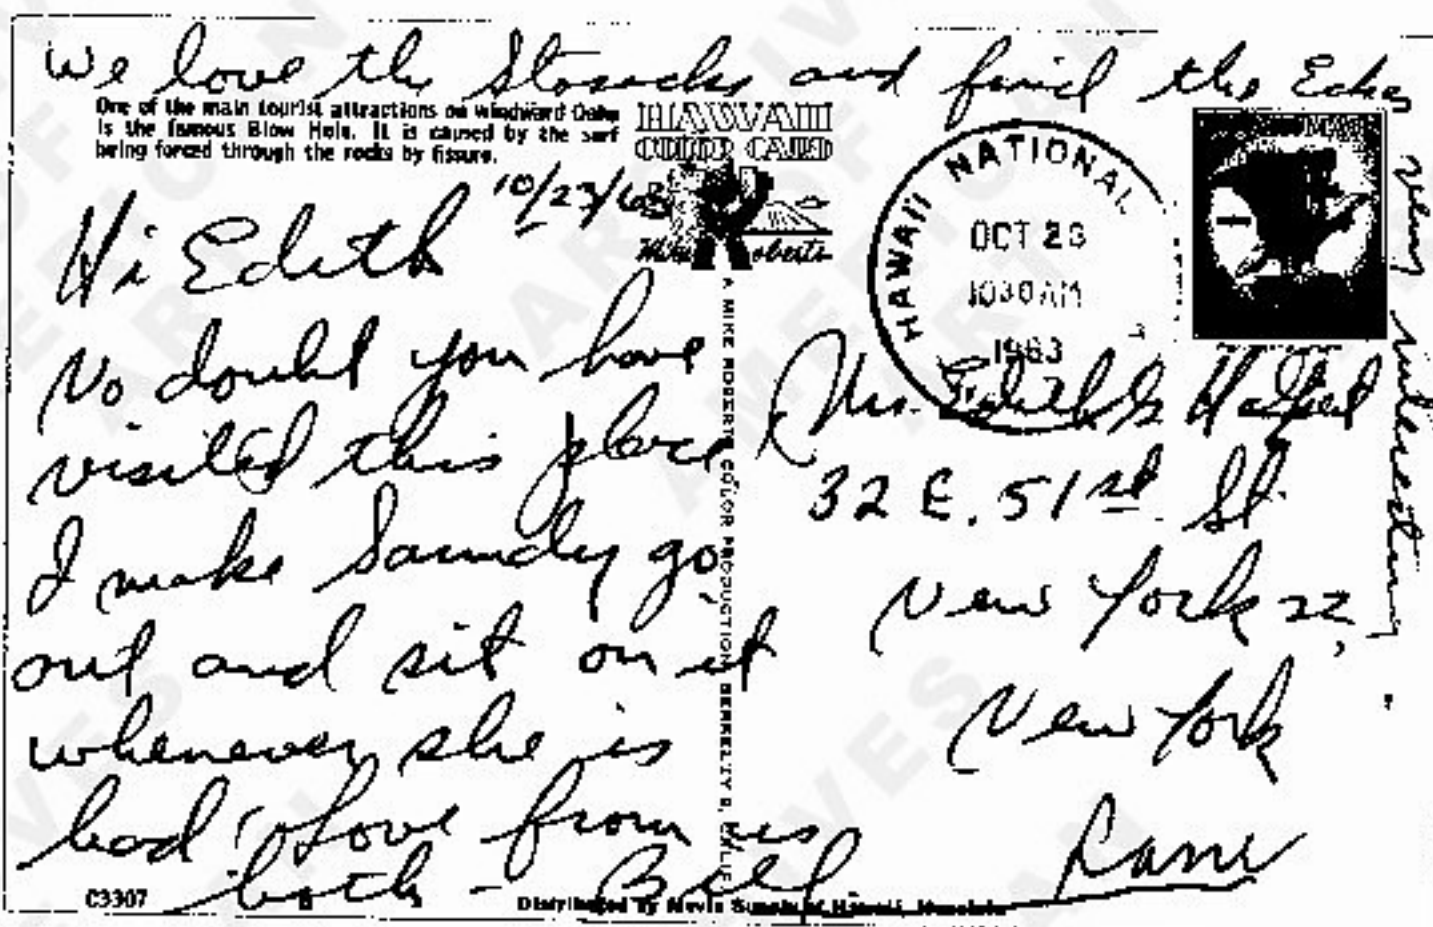 We love the and find the
very interesting.
One of the main tourist attractions on windward Oahu
is the famous Blow Hole. It is caused by the surf
being forced through the rocks by fissure.
HAWAII
COLOR CARD
Mike Roberts
10/23/63
HAWAII NATIONAL
OCT 23
1030 AM
1963
Hi Edith
No doubt you have
visited this place
I make Saundy go
out and sit on it
whenever she is
bad. Love from us
both - Bill
Lane
A MIKE ROBERTS COLOR PRODUCTION BERKELEY 2, CALIF.
Mrs. Edith Halpert
32 E. 51st St.
New York 22,
New York
C3307
Distributed by Movie Supply of Hawaii, Honolulu